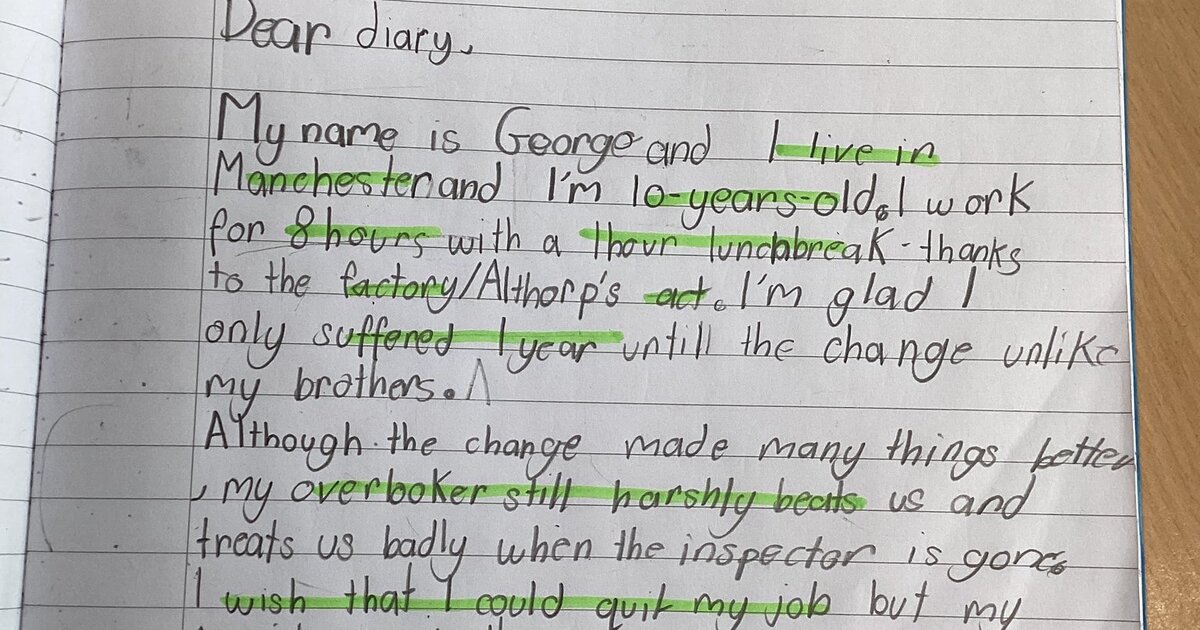 Dear diary,
My name is George and I live in
Manchester and I'm 10-years-old. I work
for 8 hours with a 1hour lunchbreak - thanks
to the factory/Althorp's act. I'm glad I
only suffered 1 year untill the change unlike
my brothers.
Although the change made many things better
, my overboker still harshly beats us and
treats us badly when the inspector is gone.
I wish that I could quit my job but my